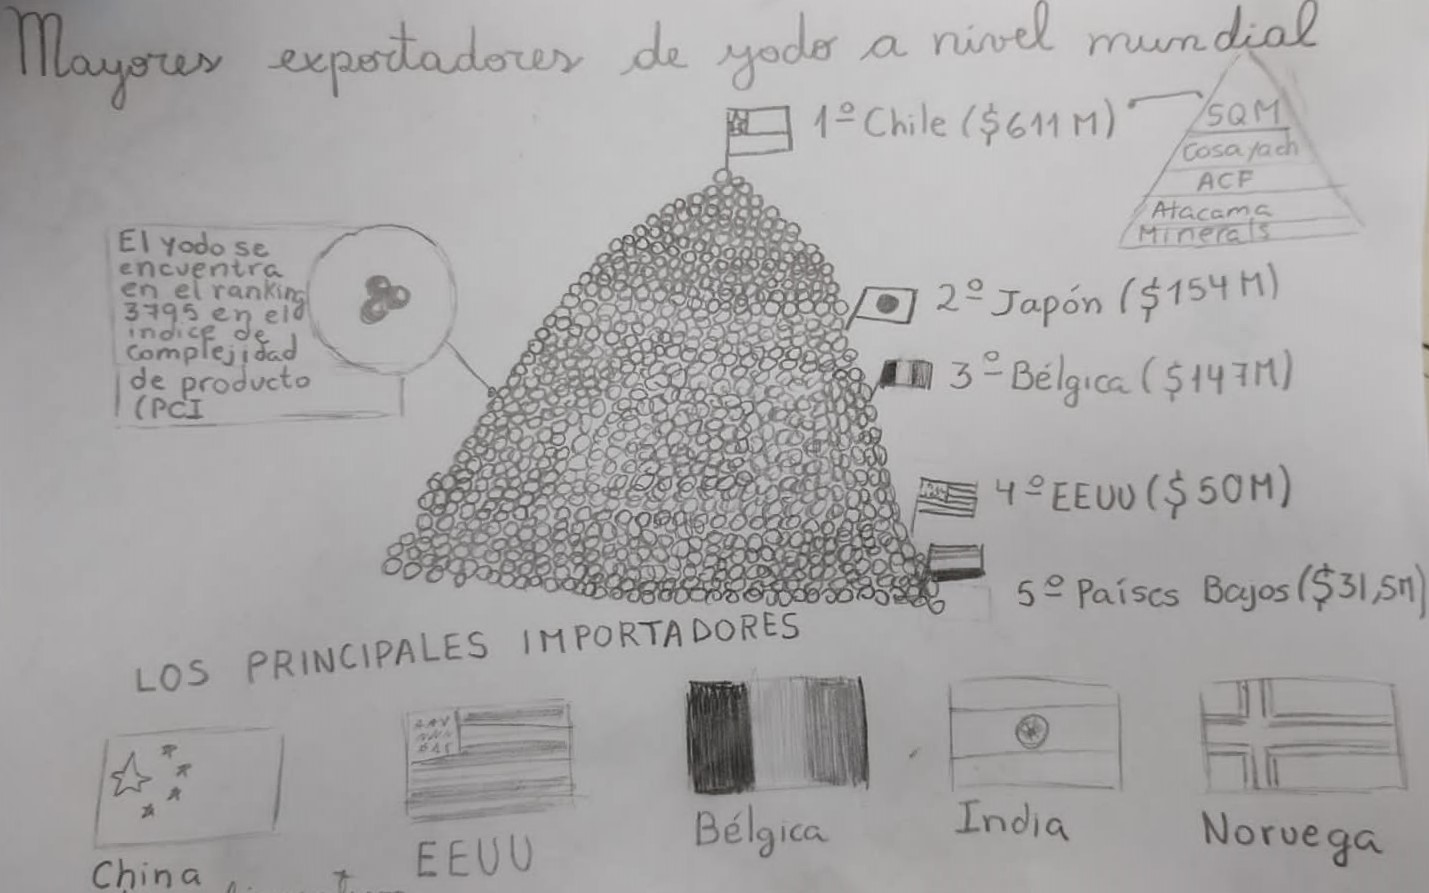 Mayores exportadores de yodo a nivel mundial
1º Chile ($611 M)
SQM
Cosayach
ACF
Atacama
Minerals
El yodo se
encuentra
en el ranking
3795 en el
indice de
complejidad
de producto
(PCI
2º Japón ($154 M)
3º Bélgica ($147M)
4º EEUU ($50M)
5º Países Bajos ($31,5M)
LOS PRINCIPALES IMPORTADORES
China
EEUU
Bélgica
India
Noruega